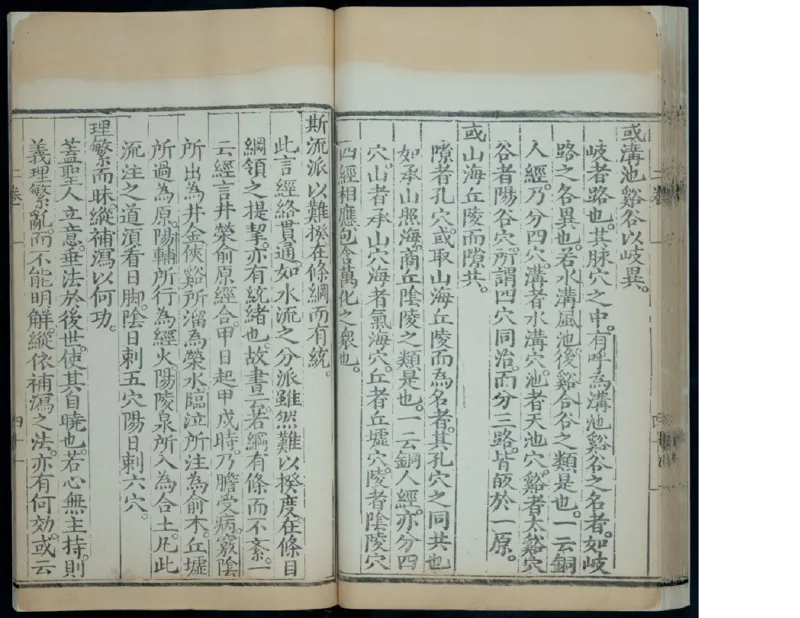 或溝池谿谷以岐異。
岐者路也。其脉穴之中。有呼為溝池谿谷之名者。如岐
路之名異也。若水溝風池後谿合谷之類是也。一云銅
人經。乃分四穴。溝者水溝穴。池者天池穴。谿者太谿穴
谷者陽谷穴。所謂四穴同治。而分三路。皆皈於一原。
或山海丘陵而隙共。
隙者孔穴。或取山海丘陵而為名者。其孔穴之同共也
如承山照海。商丘陰陵之類是也。一云銅人經。亦分四
穴。山者承山穴海者氣海穴。丘者丘墟穴。陵者陰陵穴
四經相應包含萬化之衆也。
斯流派以難揆在條綱而有統。
此言經絡貫通。如水流之分派雖然難以揆度。在條目
綱領之提挈。亦有統緒也。故書云。若綱有條而不紊。一
云經言井榮俞原經合。甲日起甲戌時。乃膽受病。竅陰
所出為井金俠谿所溜為榮水臨泣所注為俞木。丘墟
所過為原。陽輔所行為經火陽陵泉所入為合土。凡此
流注之道須看日脚。陰日刺五穴陽日刺六穴。
理繁而昧。縱補瀉以何功。
蓋聖人立意。垂法於後世。使其自曉也。若心無主持。則
義理繁亂。而不能明解。縱依補瀉之法。亦有何効。或云
二卷
四十